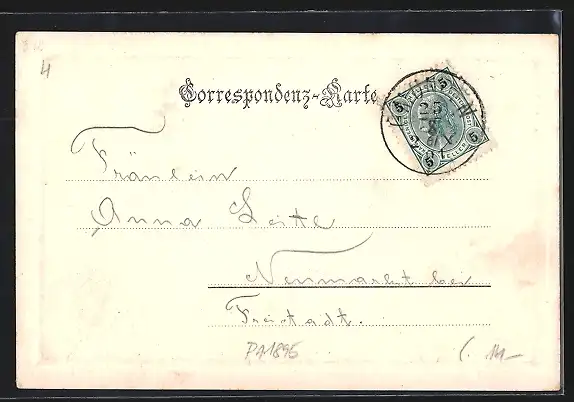 4
Correspondenz-Karte
5 5
25
8
01
5 5
HELLER
Fräulein
Anna Leite
Neumarkt bei
Freistadt.
PA1895
14-